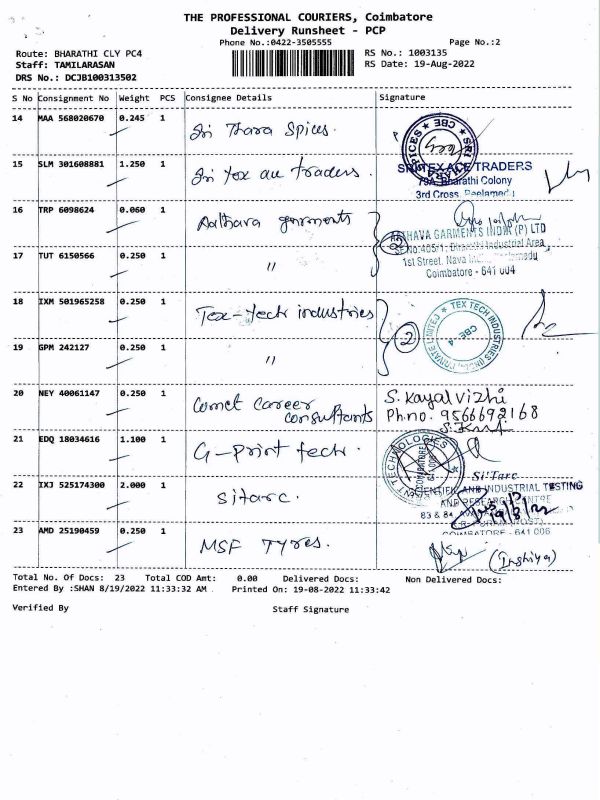 THE PROFESSIONAL COURIERS, Coimbatore
Delivery Runsheet - PCP
Phone No.:0422-3505555
Page No.:2
Route: BHARATHI CLY PC4
RS No.: 1003135
Staff: TAMILARASAN
RS Date: 19-Aug-2022
DRS No.: DCJB100313502
S No Consignment No Weight PCS Consignee Details Signature
14 MAA 568020670 0.245 1 Sri Thara Spices.
CBE
15 SLM 301608881 1.250 1 Sri Tex ace Traders.
SRI TEX ACE TRADERS
79A, Bharathi Colony
3rd Cross, Peelamedu
16 TRP 6098624 0.060 1 Aathava garments
AATHAVA GARMENTS INDIA (P) LTD
SF.No:405/1, Bharathi Industrial Area
17 TUT 6150566 0.250 1 "
2
1st Street, Nava India, Peelamedu
Coimbatore - 641 004
18 IXM 501965258 0.250 1 Tex-Tech industries
TEX TECH INDUSTRIES (INDIA) PRIVATE LIMITED
CBE - 4
2
19 GPM 242127 0.250 1 "
20 NEY 40061147 0.250 1 Comet Career
consultants
S. Kayalvizhi
Ph.no. 9566692168
21 EDQ 18034616 1.100 1 G-Print tech.
TECHNOLOGIES
COIMBATORE
641 006
22 IXJ 525174300 2.000 1 Sitarc.
Si'Tarc
SCIENTIFIC AND INDUSTRIAL TESTING
AND RESEARCH CENTRE
83 & 84
19/8/22
COIMBATORE - 641 006
23 AMD 25190459 0.250 1 MSF TYRES.
Total No. Of Docs: 23 Total COD Amt: 0.00 Delivered Docs: Non Delivered Docs:
Entered By :SHAN 8/19/2022 11:33:32 AM Printed On: 19-08-2022 11:33:42
Verified By
Staff Signature